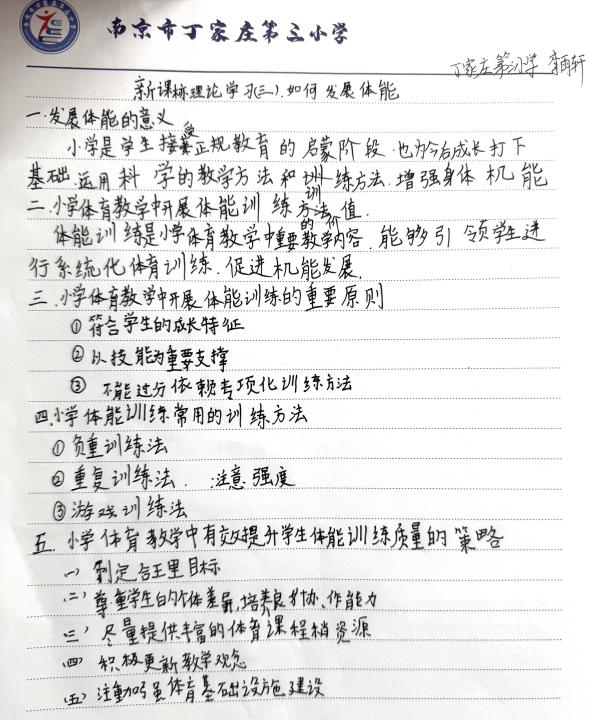 南京市丁家庄第三小学
丁家庄第三小学 李雨轩
新课标理论学习(三).如何发展体能
一.发展体能的意义
小学是学生接受正规教育的启蒙阶段.也为今后成长打下
基础.运用科学的教学方法和训练方法.增强身体机能
二.小学体育教学中开展体能训练的价值.
体能训练是小学体育教学中重要教学内容.能够引领学生进
行系统化体育训练.促进机能发展.
三.小学体育教学中开展体能训练的重要原则
①符合学生的成长特征
②以技能为重要支撑
③不能过分依赖专项化训练方法
四.小学体能训练常用的训练方法
①负重训练法
②重复训练法.注意强度
③游戏训练法
五.小学体育教学中有效提升学生体能训练质量的策略
(一)制定合理目标
(二)尊重学生的个体差异,培养良好协作能力
(三)尽量提供丰富的体育课程资源
(四)积极更新教学观念
(五)注重加强体育基础设施建设